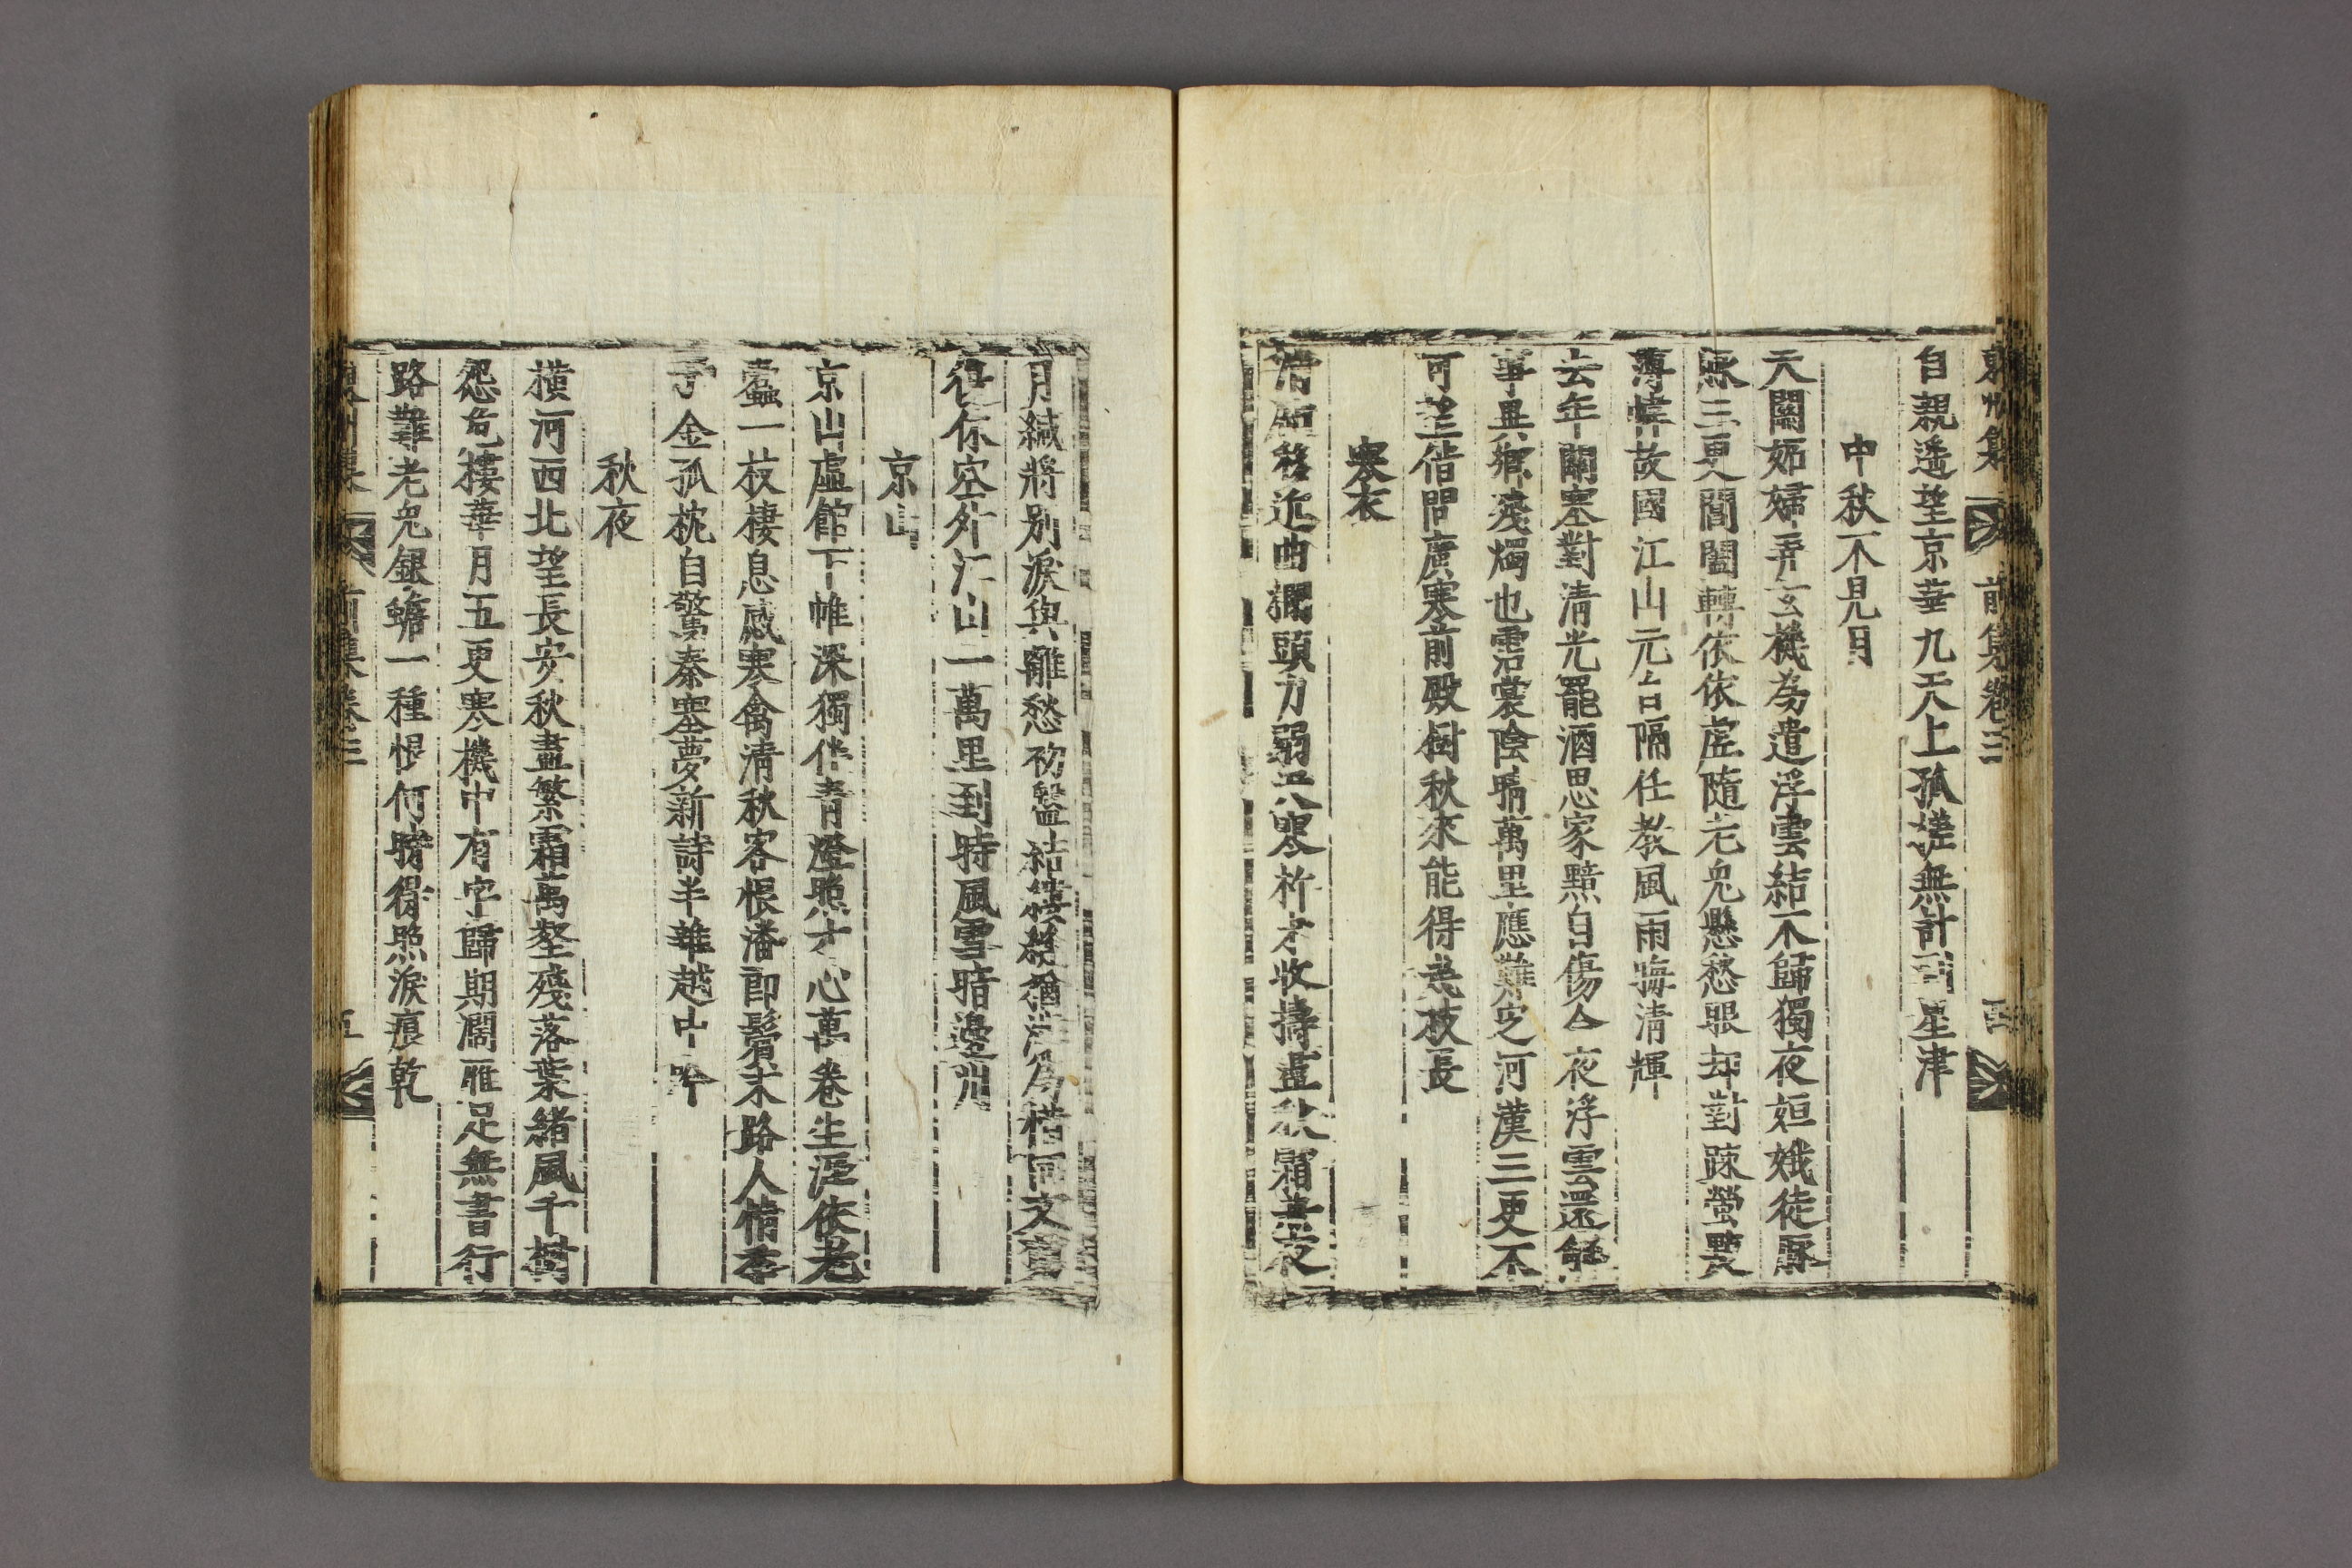 東州集 前集卷三 四
自親遙望京華九天上孤槎無計問星津
中秋不見月
天關妬婦弄玄機為遣浮雲結不歸獨夜姮娥徒
三更閶闔轉依依虛隨老兎懸愁眼却對踈螢點
薄幃故國江山元自隔任教風雨晦清輝
去年關塞對清光罷酒思家黯自傷今夜浮雲還
事異鄉殘燭也霑裳陰晴萬里應難定河漢三更不
可望借問廣寒前殿樹秋來能得幾枝長
寒衣
清 移近曲欄頭力弱 寒杵才收擣盡秋霜並夜
月緘將別淚與離愁初盤結縷 猶 為 同文
得依空外江山一萬里到時風雪暗邊州
京山
京山虛館下帷深獨伴青燈照才心萬卷生涯依老
蠹一枝棲息感寒禽清秋客恨潘郎鬢末路人情季
子金孤枕自驚秦塞夢新詩半雜越中吟
秋夜
橫河西北望長安秋盡繁霜萬壑殘落葉緒風千樹
怨危樓華月五更寒機中有字歸期濶雁足無書行
路難老兎銀蟾一種恨何時得照淚痕乾
東州集 前集卷三 五